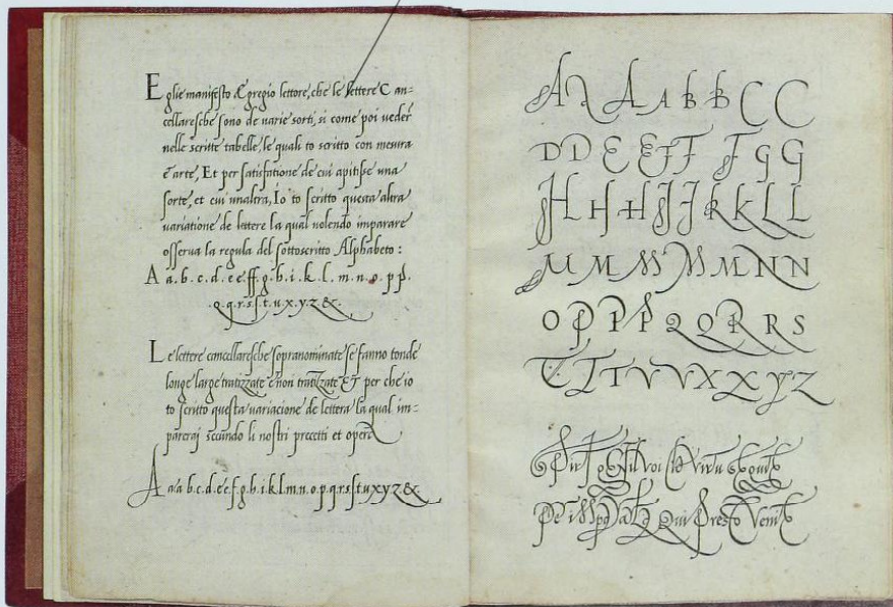 E glie manifesto Egregio lettore, che le lettere C an=
cellaresche sono de uarie sorti, si come poi ueder
nelle scritte tabelle, le quali to scritto con mesura
e arte, Et per satisfatione de cui apitisse una
sorte, et cui unaltra, Io to scritto questa altra
uariatione de lettere la qual uolendo imparare
osserua la regula del sottoscritto Alphabeto :
A a.b.c.d.e.e.ff.g.h.i.k.l.m.n.o.p.p.
.q.q.r.s.ſ.t.u.x.y.z.&.
L e lettere cancellaresche sopranominate se fanno tonde
longe large tratizzate e non tratizzate ET per che io
to scritto questa uariacione de lettera la qual im=
pareraj secundo li nostri precetti et opere
A a a b.c.d.e.e.f.g.h.i.k.l.m.n.o.p.q.r.s.ſ.t.u.x.y.z.&.
A A A A b b C C
D D E E F F G G
H H H J J K K L L
M M M M M N N
O P P P Q Q R R S
T T T V V X X Y Z
Voi Virtu
Qui Presto Venit